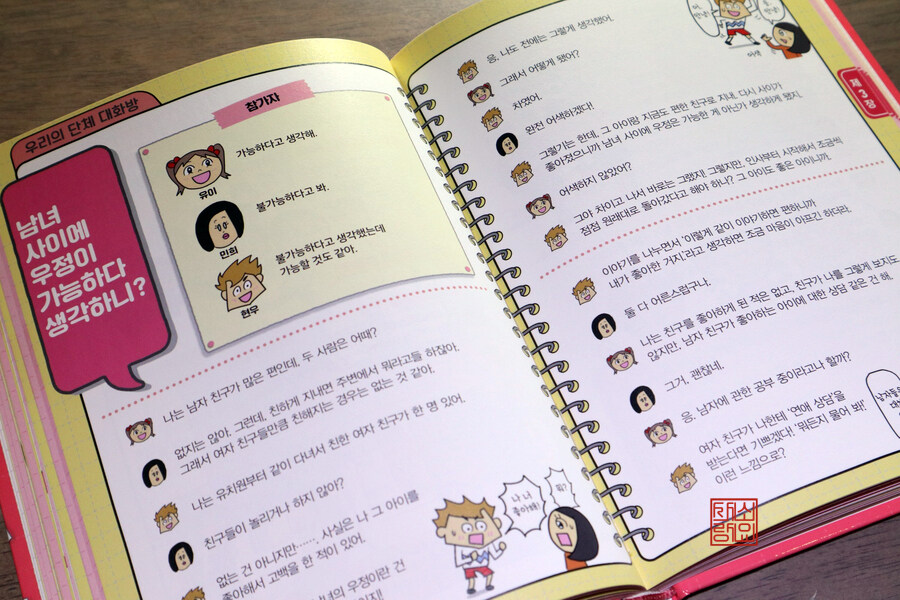 우리의 단체 대화방
남녀
사이에
우정이
가능하다
생각하니?
참가자
가능하다고 생각해.
유이
불가능하다고 봐.
민희
불가능하다고 생각했는데
가능할 것도 같아.
현우
나는 남자 친구가 많은 편인데, 두 사람은 어때?
없지는 않아. 그런데, 친하게 지내면 주변에서 뭐라고들 하잖아.
그래서 여자 친구들만큼 친해지는 경우는 없는 것 같아.
나는 유치원부터 같이 다녀서 친한 여자 친구가 한 명 있어.
친구들이 놀리거나 하지 않아?
없는 건 아니지만……. 사실은 나 그 아이를
좋아해서 고백을 한 적이 있어.
녀의 우정이란 건
나 너
좋아해!
응, 나도 전에는 그렇게 생각했어.
그래서 어떻게 됐어?
차였어.
완전 어색하겠다!
그렇기는 한데, 그 아이랑 지금도 편한 친구로 지내. 다시 사이가
좋아졌으니까 남녀 사이에 우정은 가능한 게 아닌가 생각하게 됐지.
어색하지 않았어?
그야 차이고 나서 바로는 그랬지! 그렇지만, 인사부터 시작해서 조금씩
점점 원래대로 돌아갔다고 해야 하나? 그 아이도 좋은 아이니까.
이야기를 나누면서 '이렇게 같이 이야기하면 편하니까
내가 좋아한 거지.'라고 생각하면 조금 마음이 아프긴 하더라.
둘 다 어른스럽구나.
나는 친구를 좋아하게 된 적은 없고, 친구가 나를 그렇게 보지도
않지만, 남자 친구가 좋아하는 아이에 대한 상담 같은 건 해.
그거, 괜찮네.
응, 남자에 관한 공부 중이라고나 할까?
여자 친구가 나한테 '연애 상담'을
받는다면 기쁘겠다! '뭐든지 물어 봐!'
이런 느낌으로?
제3장